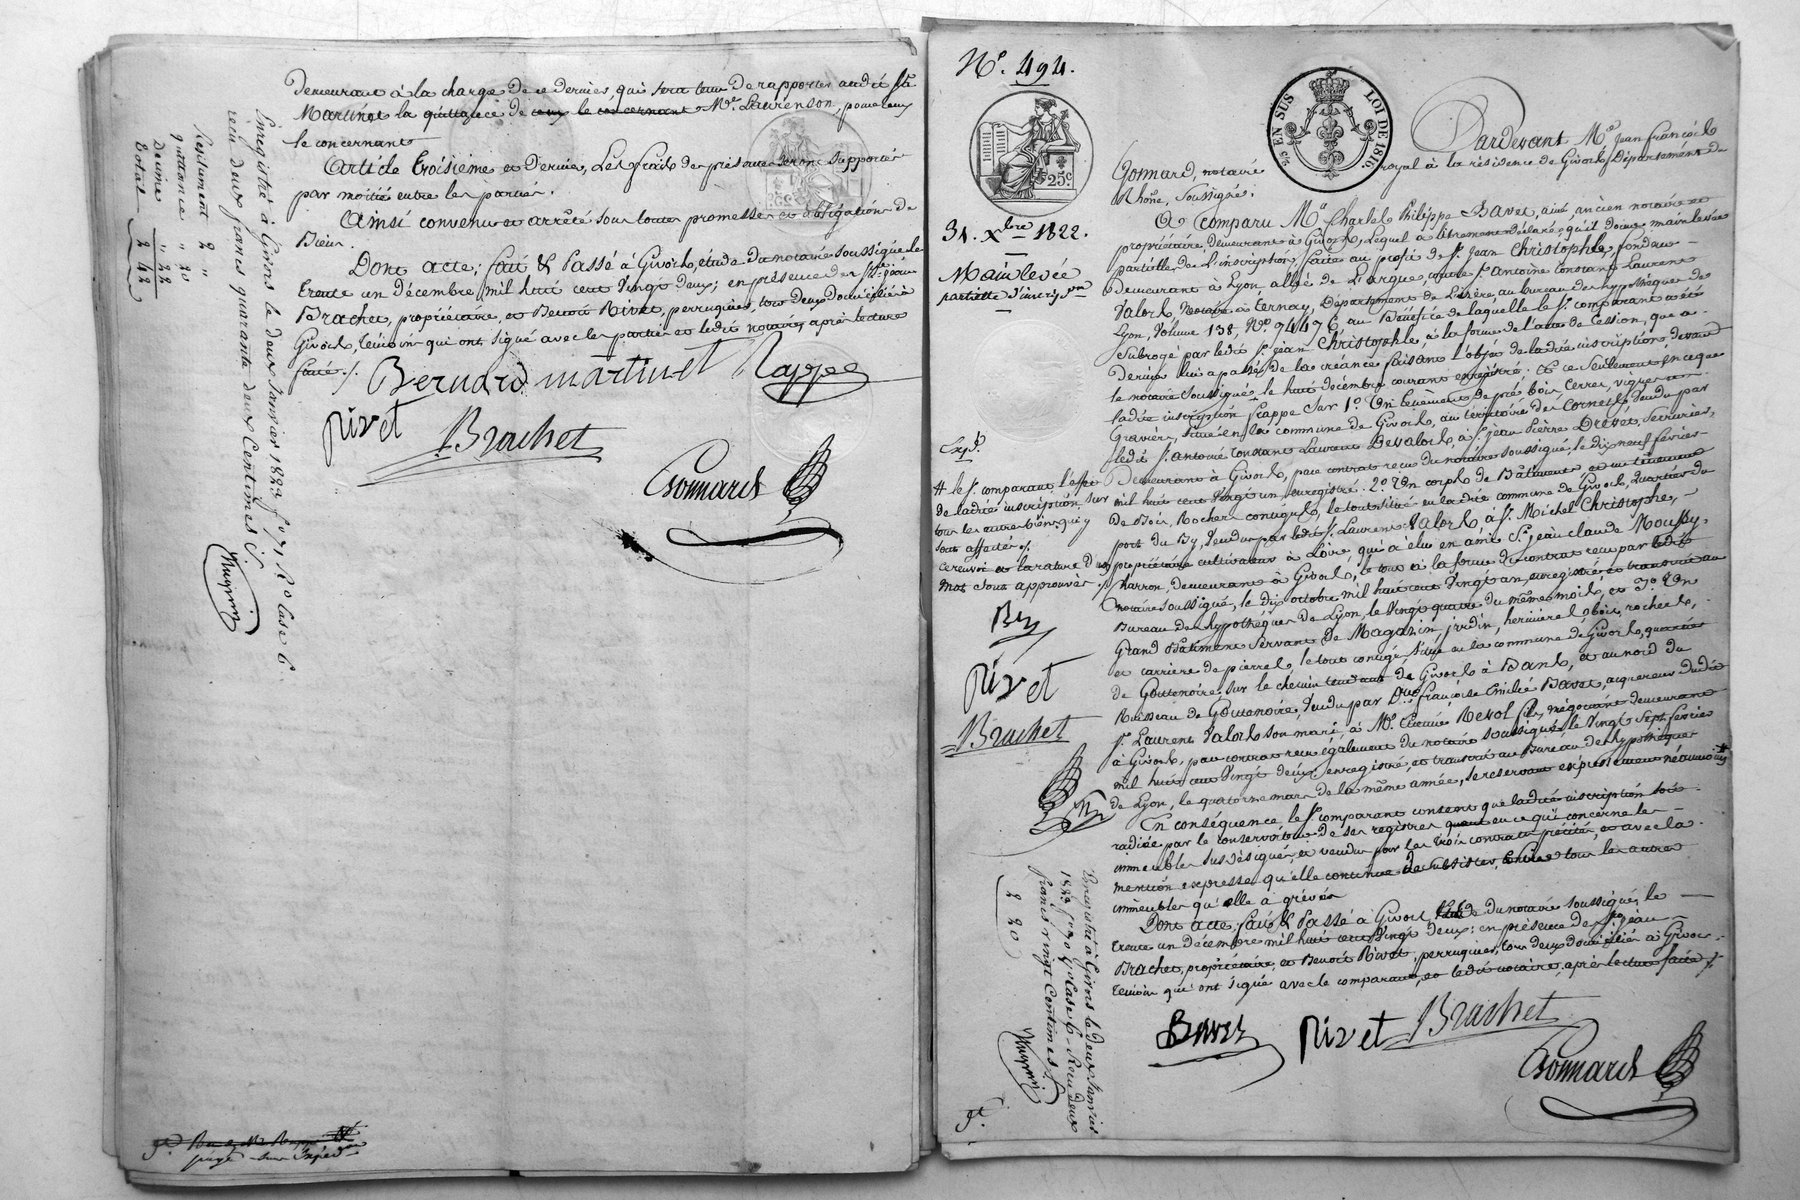 demeurant à la charge de ce dernier, qui sera tenu de rapporter audit Sr.
Martinet la quittance de Me. Laurenson, pour ceux
le concernant
Article troisième et dernier, Les frais des présentes seront supportés
par moitié entre les parties.
Ainsi convenu et arrêté sous toutes promesses et obligations de
Dont acte; fait & Passé à Givors, étude du notaire soussigné, le
trente un Décembre mil huit cent vingt deux; en présence de Sr. jean
Brachet, propriétaire, et Benoit Rivet, perruquier, tous deux domiciliés à
Givors, témoins qui ont signé avec les parties et ledit notaire, après lecture
faite ./.
Bernard martinet Rappee
rivet Brachet
Gonnard
Enregistré à Givors le deux Janvier 1823 fo. 71 Ro Case 6
reçu deux francs quarante deux Centimes
Resiliement 2 "
quittance " 20
Decime " 22
Total 2 42
No. 494.
25c.
EN SUS LOI DE 1816
31. Xbre 1822.
Mainlevée
partielle d'inscripon
Expé.
# le Sr. comparant l'effet
de ladite inscription sur
tous les autres biens qui y
sont affectés ./.
ce renvoi et la rature d'un
mot sous approuvés ./.
rivet
Brachet
Pardevant Me. Jean François
Gonnard, notaire royal à la résidence de Givors, Département du
Rhône, Soussigné;
A Comparu Me. Charles Philippe Bavet, ainé, ancien notaire et
propriétaire demeurant à Givors, Lequel a librement déclaré qu'il donne mainlevée
partielle de l'inscription faite au profit de Sr. Jean Christophle, fondeur
demeurant à Lyon allée de L'argue, contre Sr. antoine Constant Laurent
Valors, Notaire à ternay, Département de L'isère, au bureau des hypothèques de
Lyon, Volume 138 No. 94476, au Bénéfice de laquelle le Sr. comparant a été
subrogé par ledit Sr. jean Christophle, à la forme de l'acte de Cession, que ce
dernier lui a passé de la créance faisant l'objet de ladite inscription, devant
le notaire soussigné le huit décembre courant enregistré. Et ce seulement en ce que
ladite inscription frappe Sur 1o. Un tènement de pré, bois, terres, vignes et
Gravier, situé en la commune de Givors, au territoire des Cornets, vendu par
ledit Sr. antoine Constant Laurent Devalors, à Sr. jean Pierre Drevet, serrurier,
Demeurant à Givors, par contrat reçu du notaire soussigné, le dix neuf février
mil huit cent vingt un, enregistré. 2o. Un corps de Bâtiments, et un tènement
de Bois, Rochers contigus, le tout situé en ladite commune de Givors, quartier du
port du By, vendu par ledit Sr. Laurent Valors, à Sr. Michel Christophle,
propriétaire cultivateur à Loire, qui a élu en ami Sr. jean claude Moussy,
Charron, demeurant à Givors, le tout à la forme du contrat reçu par ledit
notaire soussigné, le dix octobre mil huit cent vingt un, enregistré et transcrit au
Bureau des hypothèques de Lyon, le vingt quatre du même mois, et 3o. Un
Grand Bâtiment Servant de Magasin, jardin, bois, rochers,
et carrière de pierres, le tout contigu, situé en la commune de Givors, quartier
de Goutenoire, sur le chemin tendant de Givors à Bans, et au nord du
Ruisseau de Goutenoire, vendu par Dme. françoise Emilie Bavet, du dit
Sr. Laurent Valors son mari, à Mr. Etienne Revol fils, négociant demeurant
à Givors, par contrat reçu également du notaire soussigné, le Vingt Sept février
mil huit cent vingt deux, enregistré, et transcrit au Bureau des hypothèques
de Lyon, le quatorze mars de la même année, se réservant expressément néanmoins #
En conséquence le Sr. comparant consent que ladite inscription soit
radiée par le conservateur de ses registres quant en ce qui concerne les
immeubles susdésignés, et vendus par les trois contrats précités, et avec la
mention expresse qu'elle continue de subsister tous les autres
immeubles qu'elle a grévés
Dont acte, fait & Passé à Givors, étude du notaire soussigné, le
trente un décembre mil huit cent vingt deux; en présence de Sr. jean
Brachet, propriétaire, et Benoit Rivet, perruquier, tous deux domiciliés à Givors,
témoins qui ont signé avec le comparant, et ledit notaire, après lecture faite ./.
Bavet rivet Brachet
Gonnard
Enregistré à Givors le deux Janvier
1823 fo. 70 Vo Case 6 Reçu deux
francs vingt Centimes
2 20